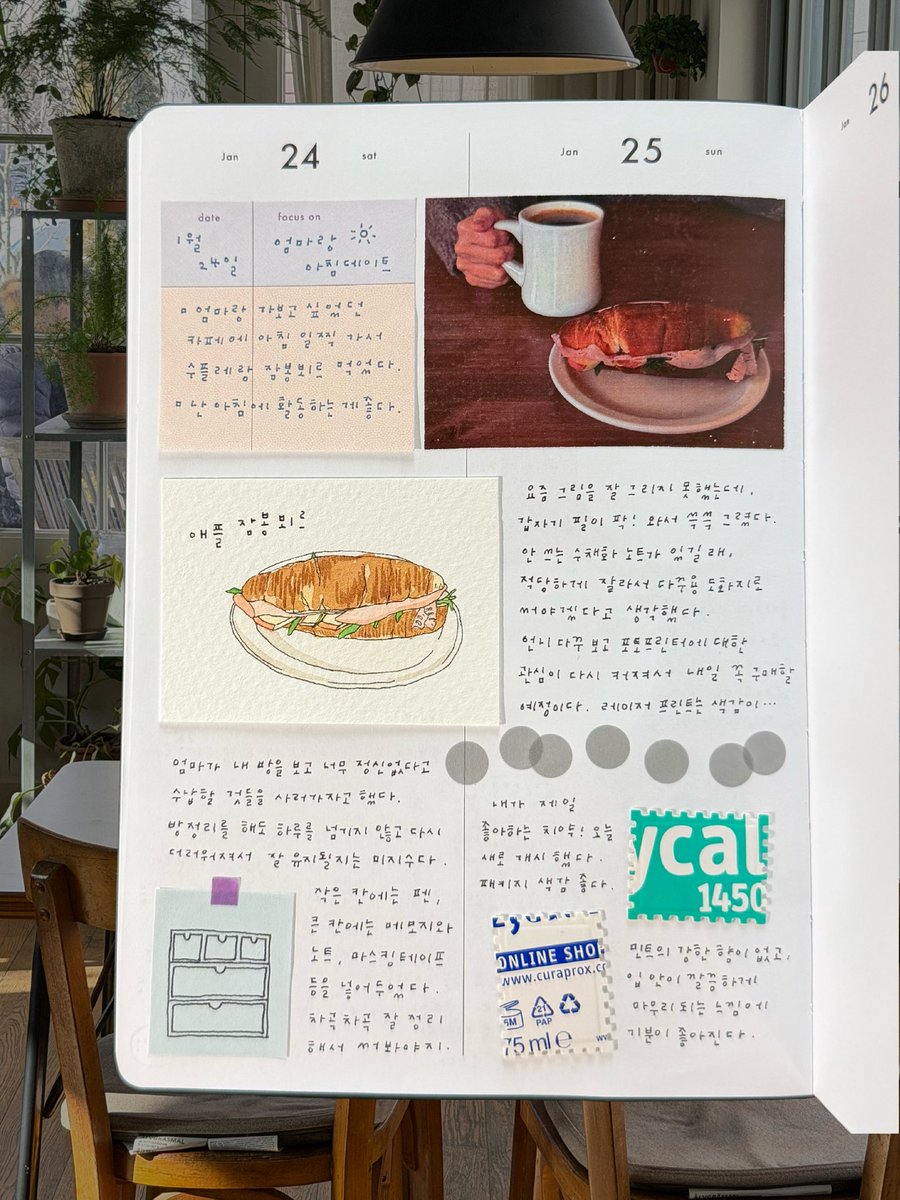 Jan 24 sat
date
focus on
1월
24일
엄마랑
아침데이트
엄마랑 가보고 싶었던
카페에 아침 일찍 가서
수플레랑 잠봉뵈르 먹었다.
난 아침에 활동하는 게 좋다.
애플 잠봉뵈르
엄마가 내 방을 보고 너무 정신없다고
수납할 것들을 사러가자고 했다.
방정리를 해도 하루를 넘기지 않고 다시
더러워져서 잘 유지될지는 미지수다.
작은 칸에는 펜,
큰 칸에는 메모지와
노트, 마스킹테이프
등을 넣어두었다.
차곡차곡 잘 정리
해서 써봐야지.
Jan 25 sun
요즘 그림을 잘 그리지 못했는데,
갑자기 필이 팍! 와서 쓱쓱 그렸다.
안 쓰는 수채화 노트가 있길래,
적당하게 잘라서 다꾸용 도화지로
써야겠다고 생각했다.
언니 다꾸 보고 포토프린터에 대한
관심이 다시 커져서 내일 꼭 구매할
예정이다. 레이저 프린트는 색감이…
내가 제일
좋아하는 치약! 오늘
새로 개시했다.
패키지 색감 좋다.
ycal
1450
ONLINE SHO
www.curaprox.co
6M
21
PAP
75 ml e
ww
민트의 강한 향이 없고,
입 안이 깔끔하게
마무리되는 느낌에
기분이 좋아진다.
Jan 26